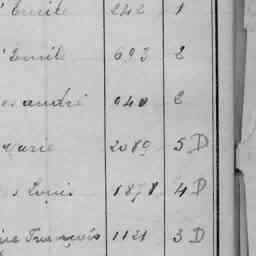 Emile 242 1
Emile 693 2
andré 640 2
Marie 2089 5 D
Louis 1878 4 D
François 1121 3 D